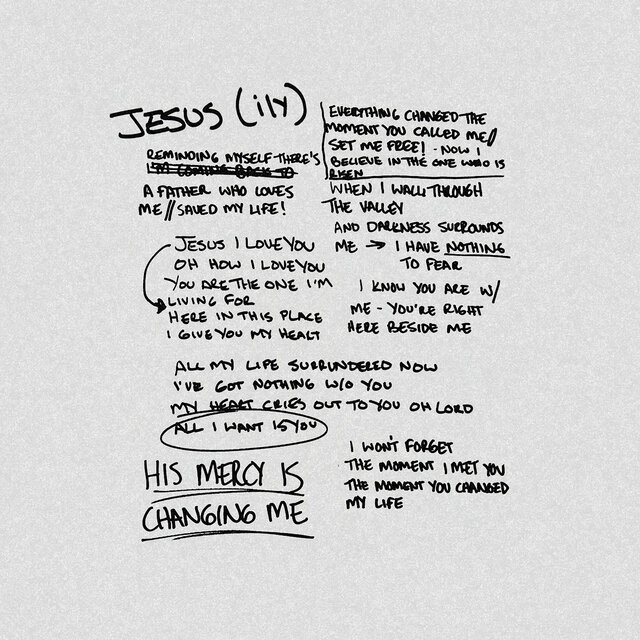 JESUS (ily)
REMINDING MYSELF THERE'S
I'M COMING BACK TO
A FATHER WHO LOVES
ME // SAVED MY LIFE!
EVERYTHING CHANGED THE
MOMENT YOU CALLED ME //
SET ME FREE! - NOW I
BELIEVE IN THE ONE WHO IS
RISEN
WHEN I WALK THROUGH
THE VALLEY
AND DARKNESS SURROUNDS
ME → I HAVE NOTHING
TO FEAR
JESUS I LOVE YOU
OH HOW I LOVE YOU
YOU ARE THE ONE I'M
LIVING FOR
HERE IN THIS PLACE
I GIVE YOU MY HEART
I KNOW YOU ARE W/
ME - YOU'RE RIGHT
HERE BESIDE ME
ALL MY LIFE SURRUNDERED NOW
I'VE GOT NOTHING W/O YOU
MY HEART CRIES OUT TO YOU OH LORD
ALL I WANT IS YOU
HIS MERCY IS
CHANGING ME
I WON'T FORGET
THE MOMENT I MET YOU
THE MOMENT YOU CHANGED
MY LIFE